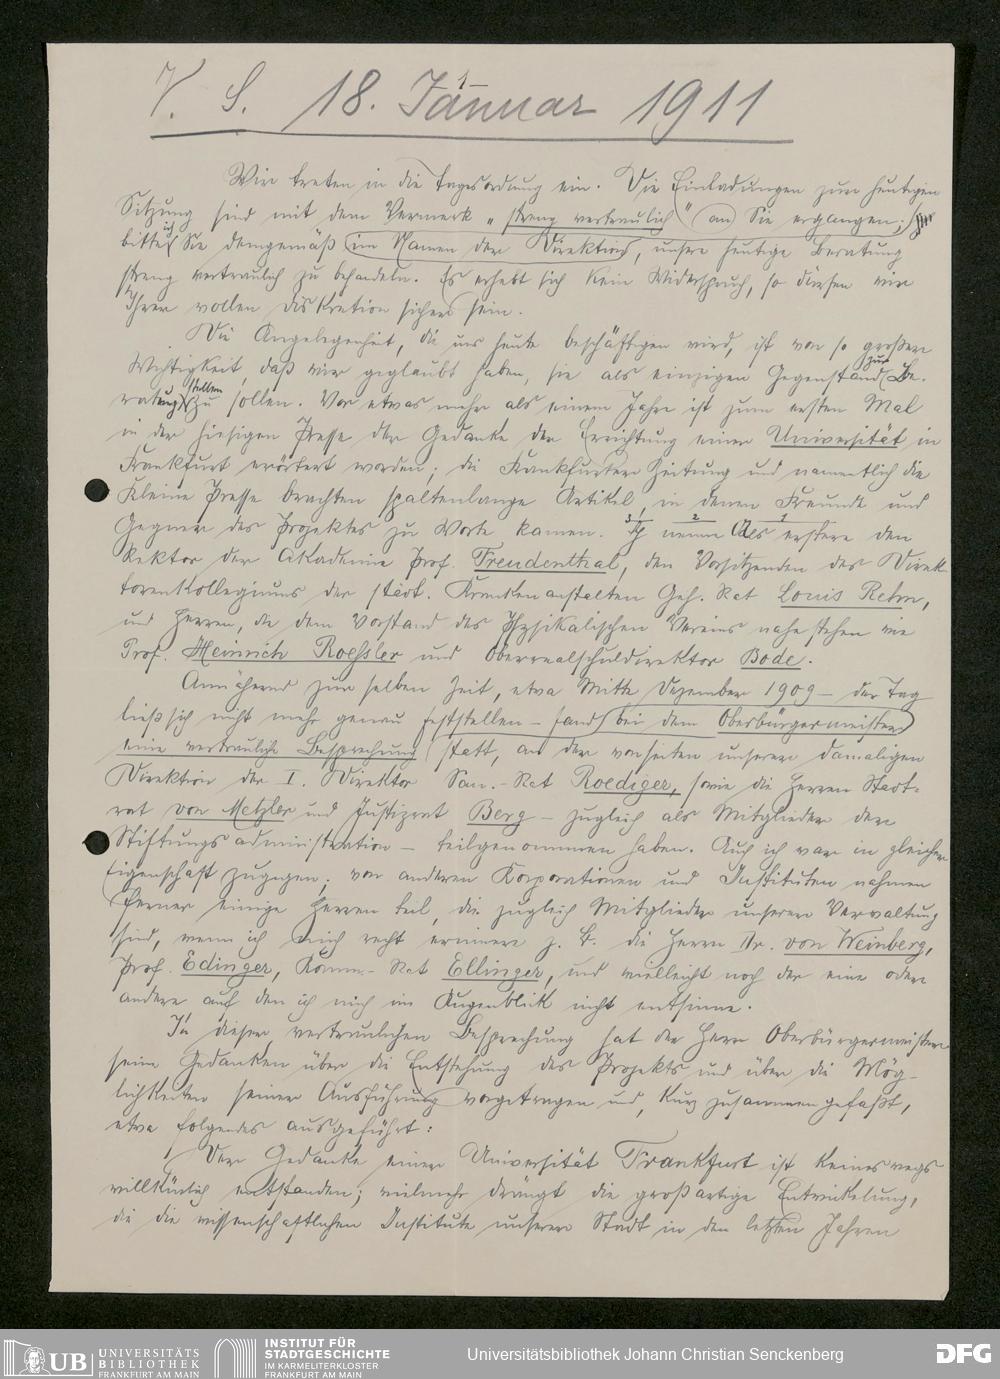 V. S. 18. Januar 1911
Wir treten in die Tagesordnung ein. Die Einladungen zur heutigen
Sitzung sind mit dem Vermerk „streng vertraulich" an Sie ergangen; 
bitte ich Sie demgemäß im Namen der Direktion, unsere heutige Beratung
streng vertraulich zu behandeln. Es erhebt sich kein Widerspruch, so dürfen wir
Ihrer vollen Diskretion sicher sein.
Die Angelegenheit, die uns heute beschäftigen wird, ist von so großer
Wichtigkeit, daß wir geglaubt haben, sie als einzigen Gegenstand zur Be-
ratung stellen zu sollen. Vor etwas mehr als einem Jahre ist zum ersten Mal
in der hiesigen Presse der Gedanke der Errichtung einer Universität in
Frankfurt erörtert worden; die Frankfurter Zeitung und namentlich die
Kleine Presse brachten spaltenlange Artikel, in denen Freunde und
Gegner des Projektes zu Worte kamen. Ich nenne als erstere den
Rektor der Akademie Prof. Freudenthal, den Vorsitzenden des Direk-
torenkollegiums der städt. Krankenanstalten Geh. Rat Louis Rehn,
und Herren, die dem Vorstand des Physikalischen Vereins nahe stehen wie
Prof. Heinrich Roessler und Oberrealschuldirektor Bode.
Annähernd zur selben Zeit, etwa Mitte Dezember 1909 – der Tag
ließ sich nicht mehr genau feststellen – fand bei dem Oberbürgermeister
eine vertrauliche Besprechung statt, an der vonseiten unserer damaligen
Direktion der I. Direktor San.-Rat Roediger, sowie die Herren Stadt-
rat von Metzler und Justizrat Berg – zugleich als Mitglieder der
Stiftungsadministration – teilgenommen haben. Auch ich war in gleicher
Eigenschaft zugegen; von anderen Korporationen und Instituten nahmen
ferner einige Herren teil, die zugleich Mitglieder unserer Verwaltung
sind, wenn ich mich recht erinnere z. B. die Herrn Dr. von Weinberg,
Prof. Edinger, Komm.-Rat Ellinger, und vielleicht noch der eine oder
andere auf den ich mich im Augenblick nicht entsinne.
In dieser vertraulichen Besprechung hat der Herr Oberbürgermeister
seine Gedanken über die Entstehung des Projekts und über die Mög-
lichkeiten seiner Ausführung vorgetragen und, kurz zusammengefaßt,
etwa folgendes ausgeführt:
Der Gedanke einer Universität Frankfurt ist keineswegs
willkürlich entstanden; vielmehr drängt die großartige Entwickelung,
die die wissenschaftlichen Institute unserer Stadt in den letzten Jahren
UB UNIVERSITÄTS
BIBLIOTHEK
FRANKFURT AM MAIN
INSTITUT FÜR
STADTGESCHICHTE
IM KARMELITERKLOSTER
FRANKFURT AM MAIN
Universitätsbibliothek Johann Christian Senckenberg
DFG